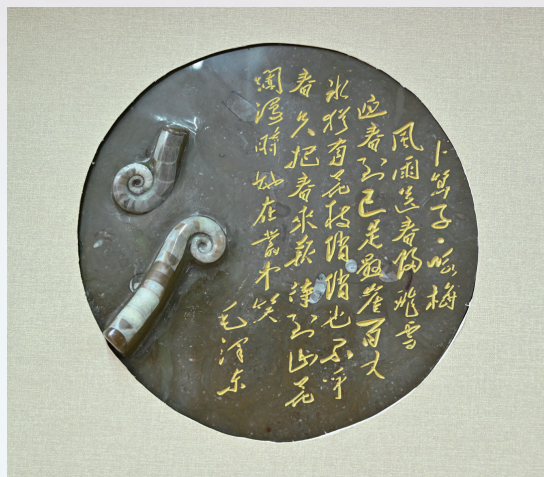 卜算子·咏梅
風雨送春歸飛雪
迎春到已是懸崖百丈
冰猶有花枝俏俏也不爭
春只把春來報待到山花
爛漫時她在叢中笑
毛澤东